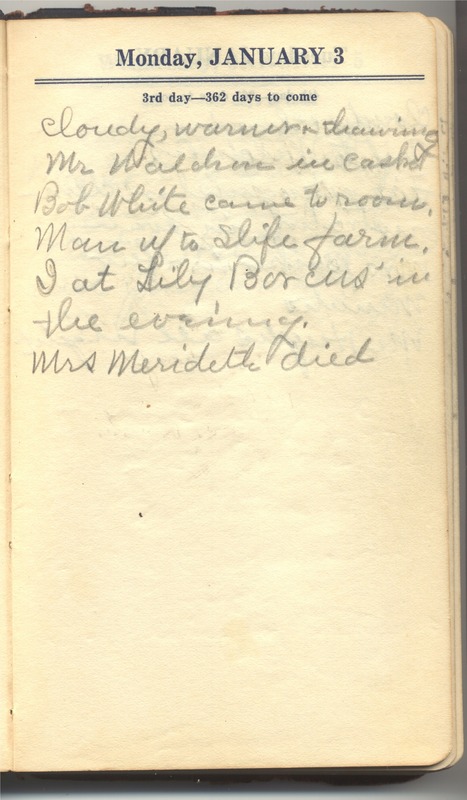 Monday, JANUARY 3
3rd day—362 days to come
Cloudy, warmer & thawing
Mr Waldron in casket
Bob White came to room.
Man up to Slife farm.
I at Lily Borcus' in
the evening.
Mrs Merideth died